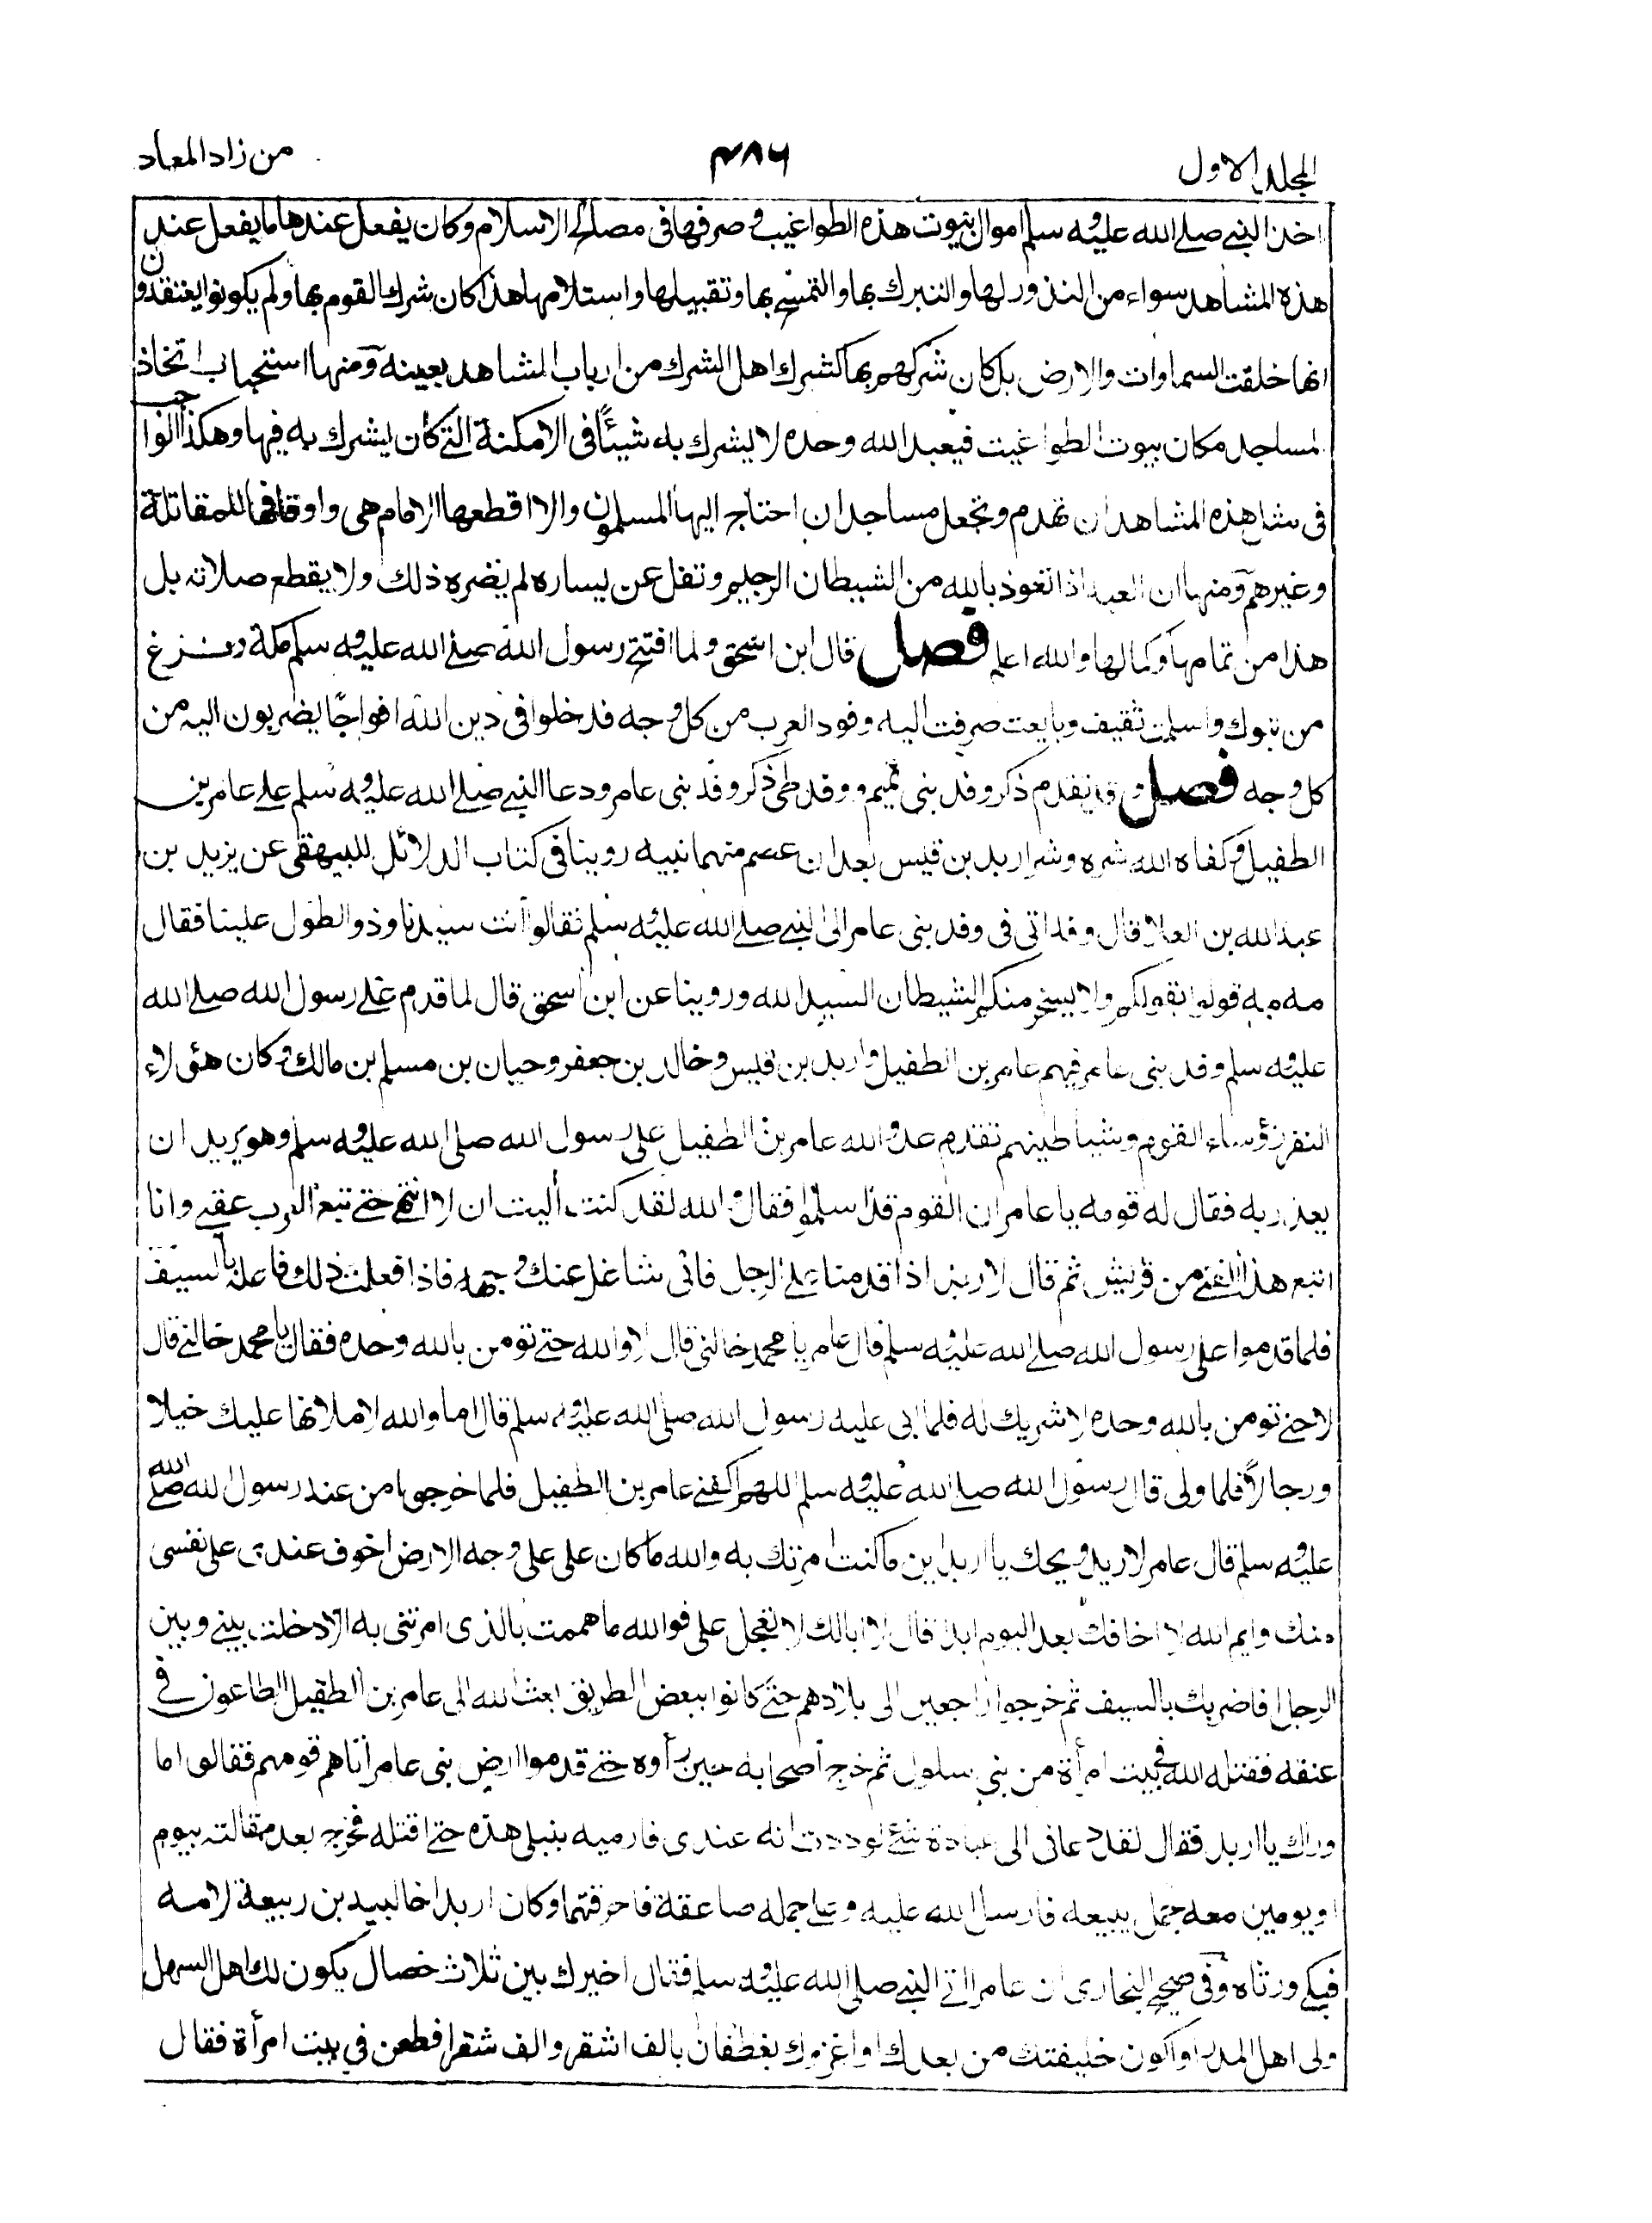 المجلد الاول ۴۸۶ من زاد المعاد
اخذ النبي صلے الله عليه وسلم اموال بيوت هذه الطواغيت وصرفها فى مصالح الاسلام وكان يفعل عندها ما يفعل عند
هذه المشاهد سواء من النذور لها والتبرك بها والتمسح بها وتقبيلها واستلامها هذا كان شرك القوم بها ولم يكونوا يعتقدون
انها خلقت السماوات والارض بل كان شركهم بها كشرك اهل الشرك من ارباب المشاهد بعينه ومنها استحباب اتخاذ
المساجد مكان بيوت الطواغيت فيعبد الله وحده لا يشرك به شيئًا فى الامكنة التى كان يشرك به فيها وهكذا الواجب
فى مثل هذه المشاهد ان تهدم وتجعل مساجد ان احتاج اليها المسلمون والا اقطعها الامام هى واوقافها للمقاتلة
وغيرهم ومنها ان العبد اذا تعوذ بالله من الشيطان الرجيم وتفل عن يساره لم يضره ذلك ولا يقطع صلاته بل
هذا من تمامها وكمالها والله اعلم فصل قال ابن اسحق ولما افتتح رسول الله صلے الله عليه وسلم مكة وفرغ
من تبوك واسلمت ثقيف وبايعت ضربت اليه وفود العرب من كل وجه فدخلوا فى دين الله افواجًا يضربون اليه من
كل وجه فصل وقد تقدم ذكر وفد بنى تميم ووفد طى ذكر وفد بنى عامر ودعا النبي صلے الله عليه وسلم على عامر بن
الطفيل وكفاه الله شره وشر اربد بن قيس بعد ان عصم منهما نبيه روينا فى كتاب الدلائل للبيهقى عن يزيد بن
عبد الله بن العلا قال وفد ابى فى وفد بنى عامر الى النبي صلے الله عليه وسلم فقالوا انت سيدنا وذو الطول علينا فقال
مه مه قولوا بقولكم ولا يستجر منكم الشيطان السيد الله وروينا عن ابن اسحق قال لما قدم على رسول الله صلے الله
عليه وسلم وفد بنى عامر فيهم عامر بن الطفيل واربد بن قيس وخالد بن جعفر وحيان بن مسلم بن مالك وكان هؤلاء
النفر رؤساء القوم وشياطينهم تقدم عدو الله عامر بن الطفيل على رسول الله صلى الله عليه وسلم وهو يريد ان
يغدر به فقال له قومه يا عامر ان القوم قد اسلموا فقال والله لقد كنت أليت ان لا انتهى حتى تتبع العرب عقبي وانا
اتبع هذا الفتى من قريش ثم قال لاربد اذا قدمنا على الرجل فانى شاغل عنك وجهه فاذا فعلت ذلك فاعله بالسيف
فلما قدموا على رسول الله صلے الله عليه وسلم قال عامر يا محمد خالنى قال لا والله حتى تومن بالله وحده فقال يا محمد خالنى قال
لا حتى تومن بالله وحده لا شريك له فلما ابى عليه رسول الله صلى الله عليه وسلم قال اما والله لاملانها عليك خيلا
ورجالًا فلما ولى قال رسول الله صلے الله عليه وسلم اللهم اكفنى عامر بن الطفيل فلما خرجوا من عند رسول الله صلے الله
عليه وسلم قال عامر لاربد ويحك يا اربد اين ما كنت امرتك به والله ما كان على على وجه الارض اخوف عندى على نفسى
منك وايم الله لا اخافك بعد اليوم ابدا قال لا ابالك لا تعجل على فوالله ما هممت بالذى امرتنى به الا دخلت بينى وبين
الرجل افاضربك بالسيف ثم خرجوا راجعين الى بلادهم حتى كانوا ببعض الطريق بعث الله الى عامر بن الطفيل الطاعون فى
عنقه فقتله الله فى بيت امرأة من بنى سلول ثم خرج أصحابه حين رأوه حتى قدموا ارض بنى عامر أتاهم قومهم فقالوا ما
وراك يا اربد فقال لقد دعانى الى عبادة شئ لوددت انه عندى فارميه بنبلى هذه حتى اقتله فخرج بعد مقالته بيوم
او يومين معه جمل يبيعه فارسل الله عليه وعلى جمله صاعقة فاحرقتهما وكان اربد اخا لبيد بن ربيعة لامه
فبكى ورثاه وفى صحيح البخارى ان عامرا اتى النبى صلى الله عليه وسلم فقال اخيرك بين ثلاث خصال يكون لك اهل السهل
ولى اهل المدر او اكون خليفتك من بعدك او اغزوك بغطفان بالف اشقر والف شقرا فطعن في بيت امرأة فقال